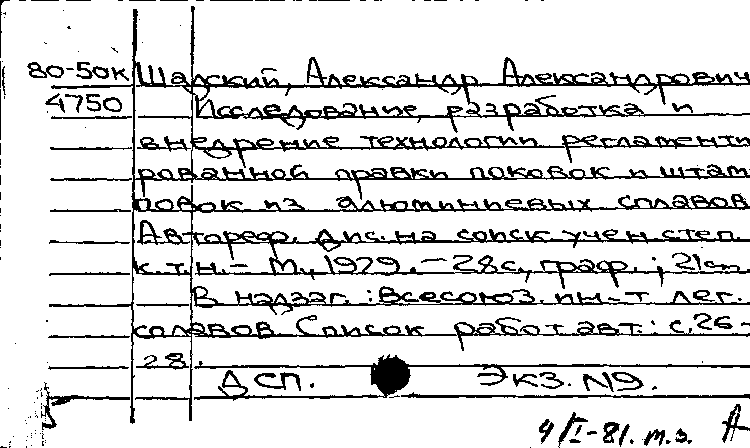 80-50к Шадский, Александр Александрович
4750 Исследование, разработка и
внедрение технологии регламенти
рованной правки поковок и штам
повок из алюминиевых сплавов
Автореф. дис. на соиск. учен. степ.
к.т.н. - М., 1979. - 28с, граф.; 21см
В надзаг.: Всесоюз. ин-т лег.
сплавов Список работ авт.: с. 26-
28.
ДСП. Экз. №9.
4/I-81. т.з.